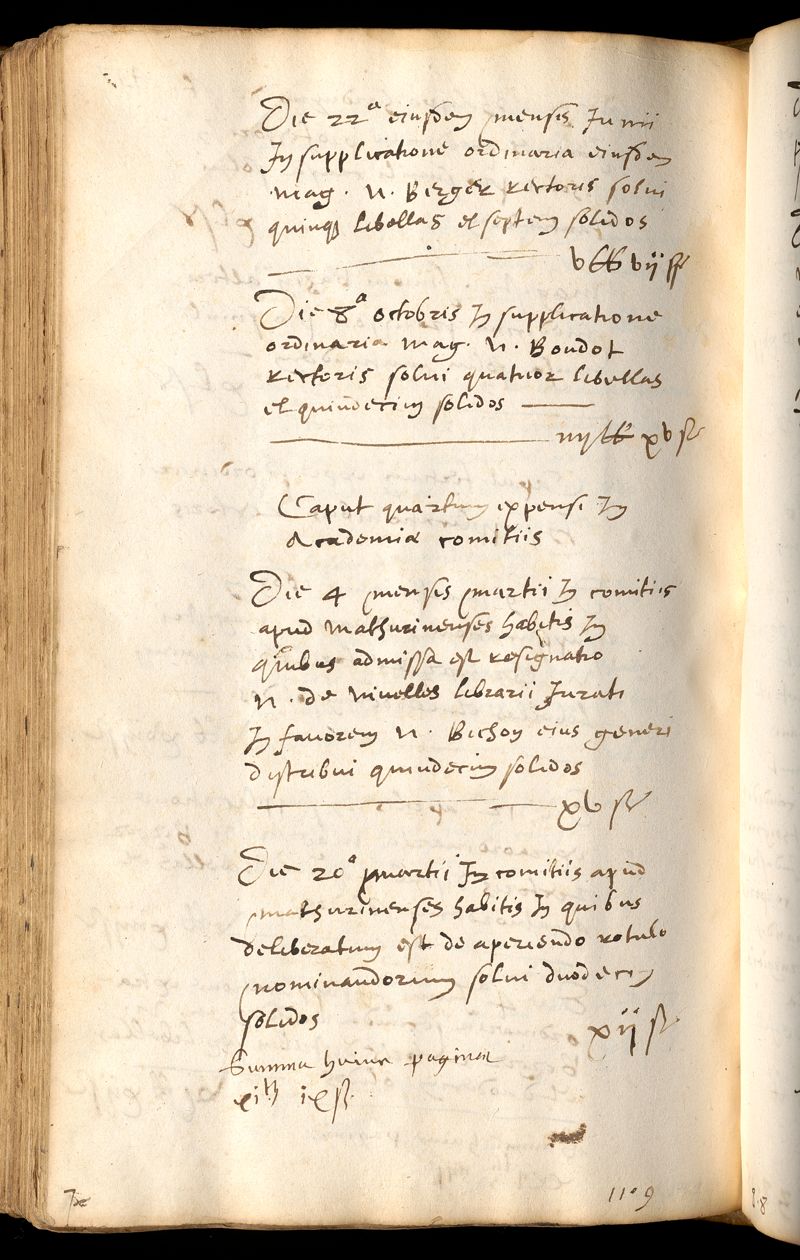 Die 22ᵃ eiusdem mensis Junii
In supplicatione ordinaria eiusdem
mag. N. Berger rectoris solui
quinq libellas et septem solidos
v ll vij s
Die 8ᵃ octobris In supplicatione
ordinaria mag. N. Boudot
rectoris solui quatuor libellas
et quindecim solidos
iiij ll xv s
Caput quartum expensi In
Academiæ comitiis
Die 4 mensis martii In comitiis
apud mathurinenses habitis In
quibus admissa est resignatio
N. de Niuelles librarii Jurati
In fauorem N. Bichon eius generi
distribui quindecim solidos
xv s
Die 20ᵃ martii In comitiis apud
mathurinenses habitis In quibus
deliberatum est de aperiendo rotulo
nominandorum solui duodecim
solidos
xij s
Summa huius paginæ
xi ll ix s
11 ° 9